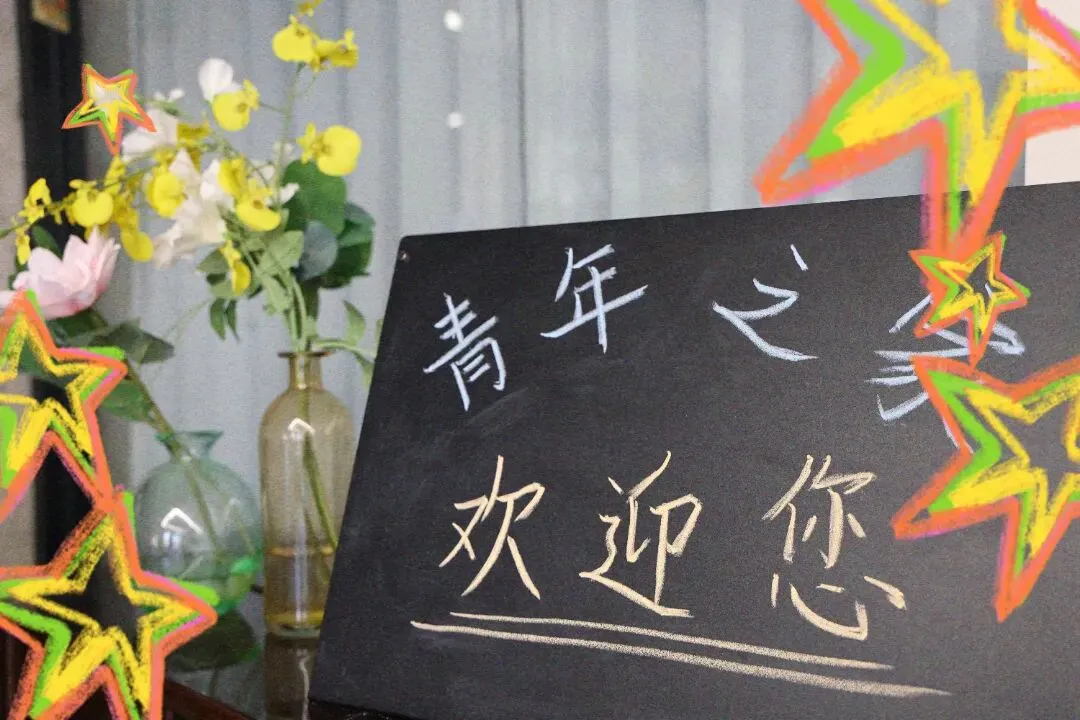 青年之家
欢迎您